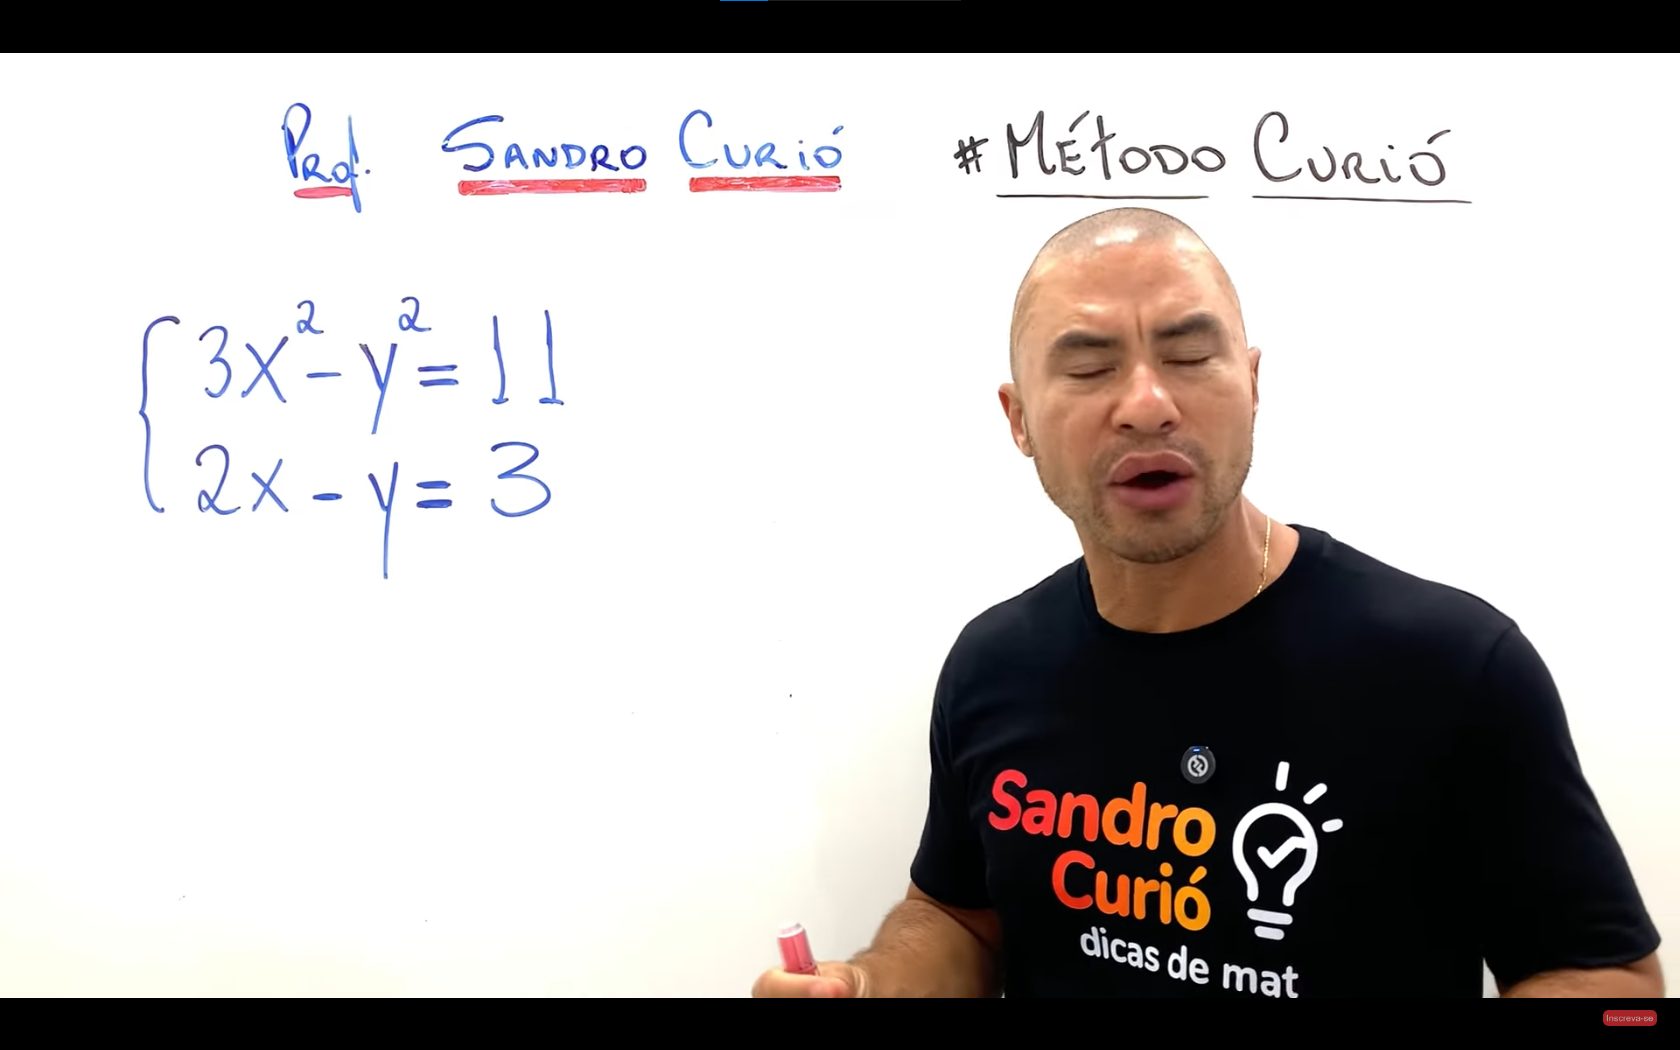 Prof. Sandro Curió #Método Curió
3x² - y² = 11
2x - y = 3
Sandro
Curió
dicas de mat
Inscreva-se